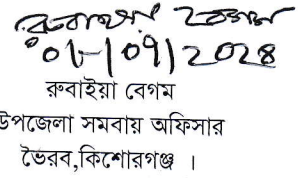 রুবাইয়া বেগম
০৮/০৭/২০২৪
রুবাইয়া বেগম
উপজেলা সমবায় অফিসার
ভৈরব,কিশোরগঞ্জ ।